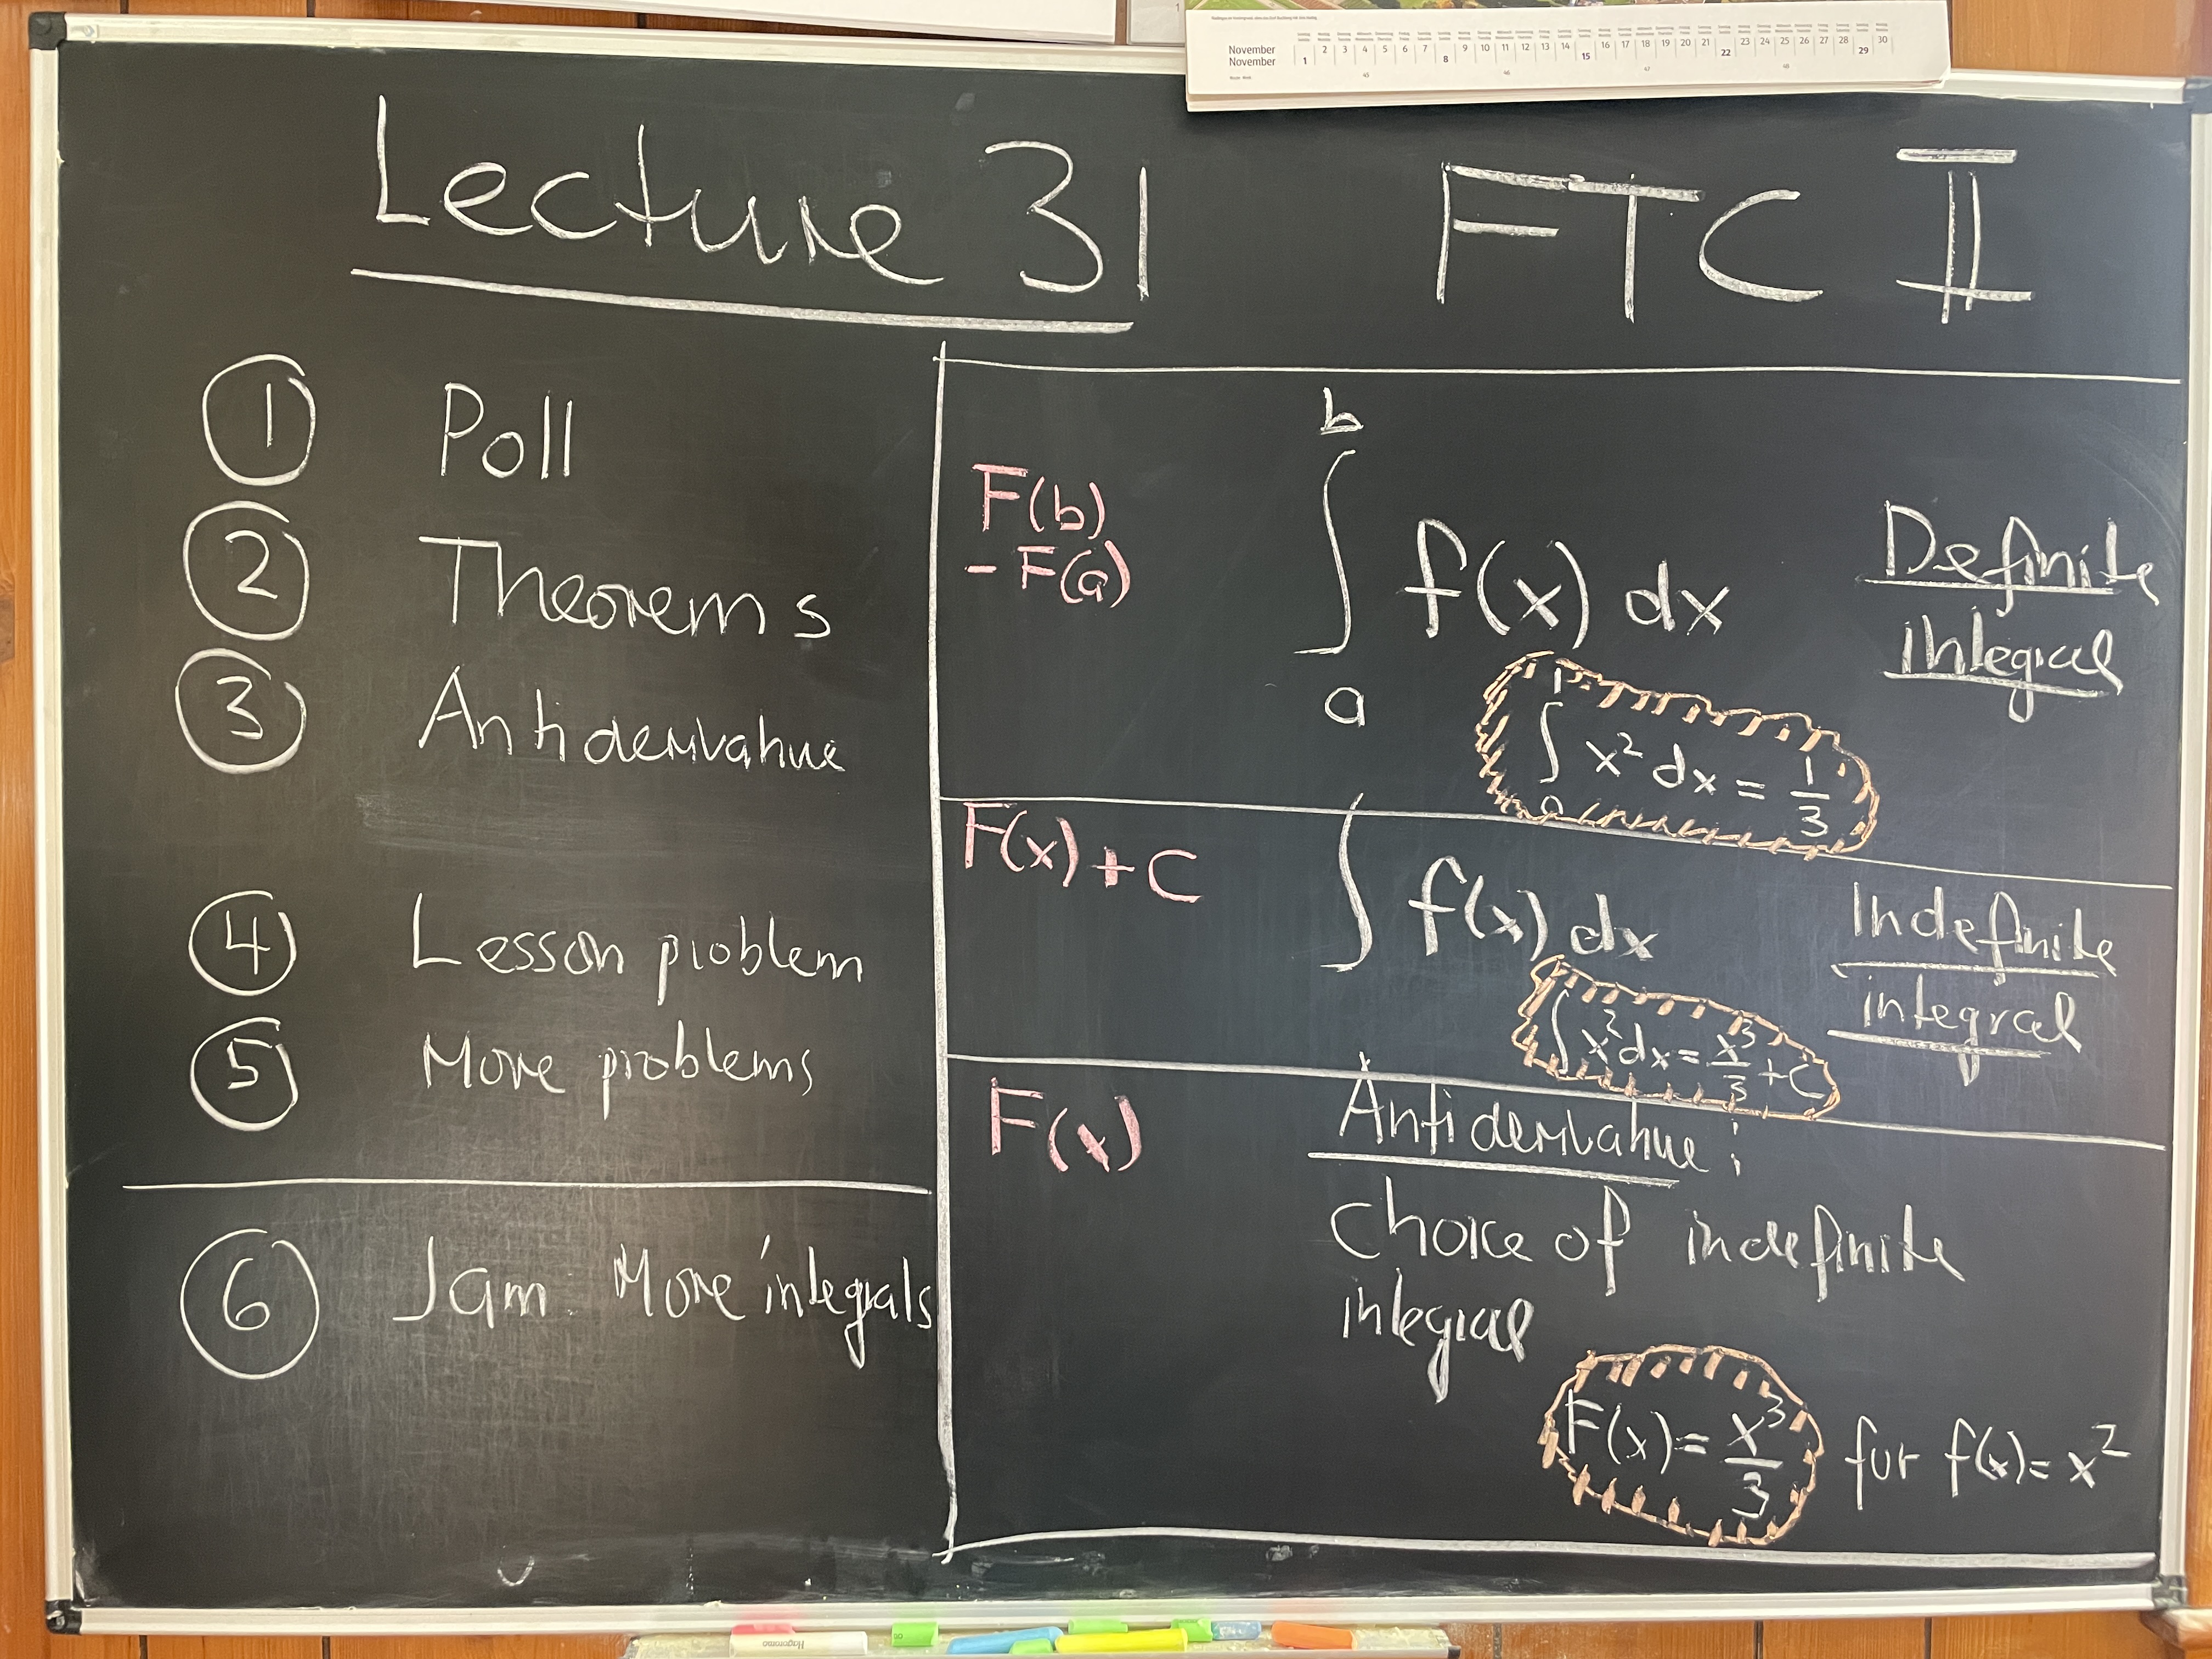 November
November
1 2 3 4 5 6 7 8 9 10 11 12 13 14 15 16 17 18 19 20 21 22 23 24 25 26 27 28 29 30
45 46 47 48
Lecture 31
FTC II
1 Poll
2 Theorems
3 Antiderivative
4 Lesson problem
5 More problems
6 Jam: More integrals
F(b)
- F(a)
∫_a^b f(x) dx
Definite
integral
∫_0^1 x² dx = 1/3
F(x) + C
∫ f(x) dx
Indefinite
integral
∫ x² dx = x³/3 + C
F(x)
Antiderivative:
choice of indefinite
integral
F(x) = x³/3 for f(x) = x²
Hagoromo